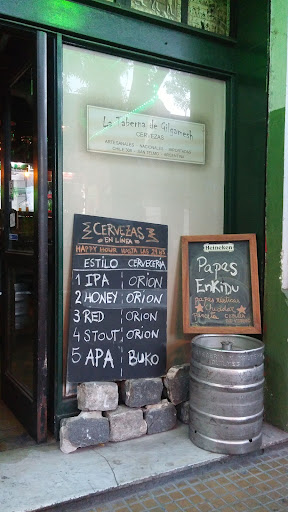 La Taberna de Gilgamesh
CERVEZAS
ARTESANALES NACIONALES IMPORTADAS
CERVEZAS
EN LÍNEA
HAPPY HOUR HASTA LAS
ESTILO CERVECERIA
1 IPA ORION
2 HONEY ORION
3 RED ORION
4 STOUT ORION
5 APA BUKO
Heineken
PAPAS
ENKIDU
papas rústicas
cheddar
panceta